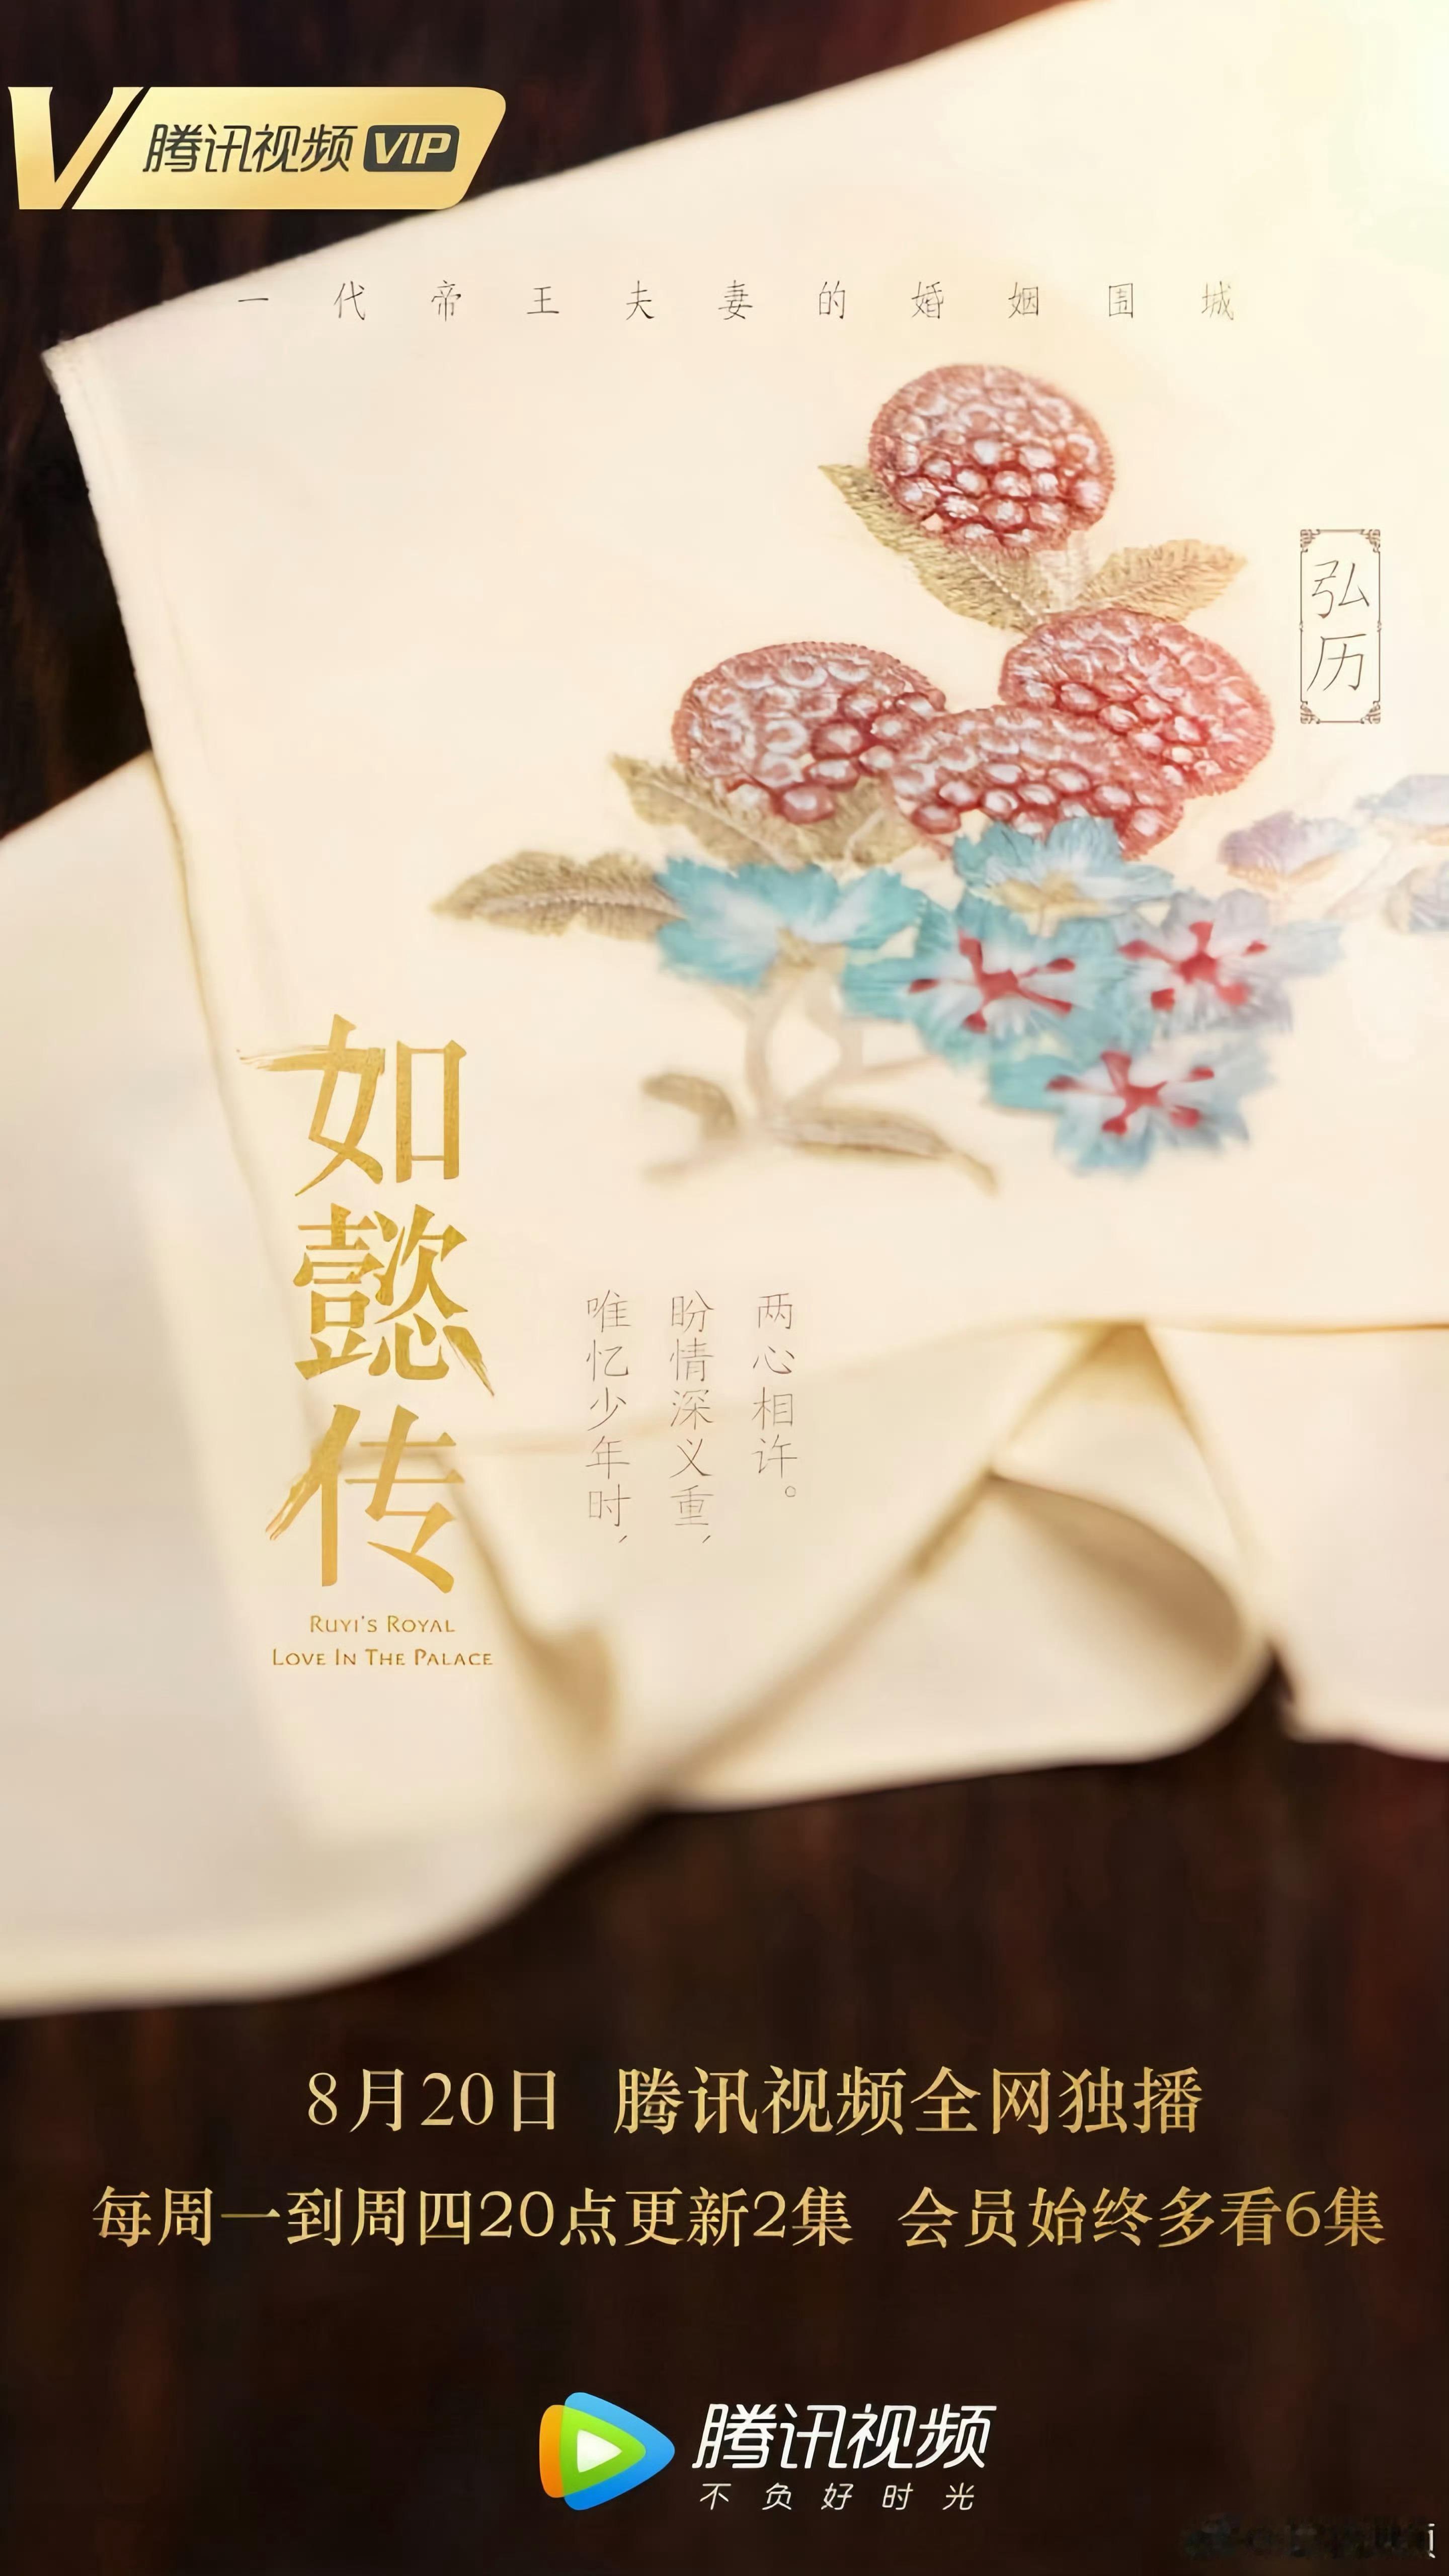 V 腾讯视频 VIP
一代帝王夫妻的婚姻围城
弘历
如懿传
RUYI'S ROYAL
LOVE IN THE PALACE
唯忆少年时，
盼情深义重，
两心相许。
8月20日 腾讯视频全网独播
每周一到周四20点更新2集 会员始终多看6集
腾讯视频
不负好时光